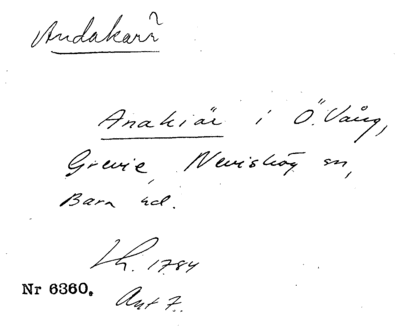 Andakärr
Anakiär i Ö. Vång,
Grevie, Nevishög sn,
Bara hd.
Lh. 1784
Nr 6360.
Akt 7.